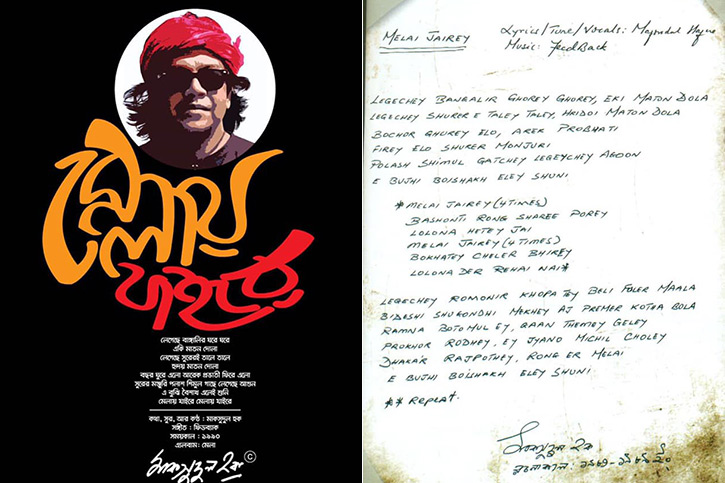 মেলায়
যাইরে
লেগেছে বাঙ্গালির ঘরে ঘরে
একি মাতন দোলা
লেগেছে সুরেরই তালে তালে
হৃদয় মাতন দোলা
বছর ঘুরে এলো আরেক প্রভাতী ফিরে এলো
সুরের মঞ্জুরি পলাশ শিমুল গাছে লেগেছে আগুন
এ বুঝি বৈশাখ এলেই শুনি
মেলায় যাইরে মেলায় যাইরে
কথা, সুর, আর কণ্ঠ : মাকসুদুল হক
সঙ্গীত : ফিডব্যাক
সময়কাল : ১৯৯০
এলবাম: মেলা
মাকসুদুল হক ©
MELAI JAIREY
Lyrics/Tune/Vocals: Maqsudul Haque
Music: FeedBack
LEGECHEY BANGALIR GHOREY GHOREY, EKI MATON DOLA
LEGECHEY SHURER E TALEY TALEY, HRIDOI MATON DOLA
BOCHOR GHUREY ELO, AREK PROBHATI
FIREY ELO SHURER MONJURI
POLASH SHIMUL GATCHEY LEGEYCHEY AGOON
E BUJHI BOISHAKH ELEY SHUNI
*MELAI JAIREY (4 TIMES)
BASHONTI RONG SHAREE POREY
LOLONA HETEY JAI
MELAI JAIREY (4 TIMES)
BOKHATEY CHELER BHIREY
LOLONA DER REHAI NAI*
LEGECHEY ROMONIR KHOPA TEY BELI FULER MAALA
BIDESHI SHUGONDHI MEKHEY AJ PREMER KOTHA BOLA
RAMNA BOTOMUL EY, GAAN THEMEY GELEY
PROKHOR RODHEY, EY JYANO MICHIL CHOLEY
DHAKAR RAJPOTHEY, RONG ER MELAI
E BUJHI BOISHAKH ELEY SHUNI
** REPEAT.
মাকসুদুল হক